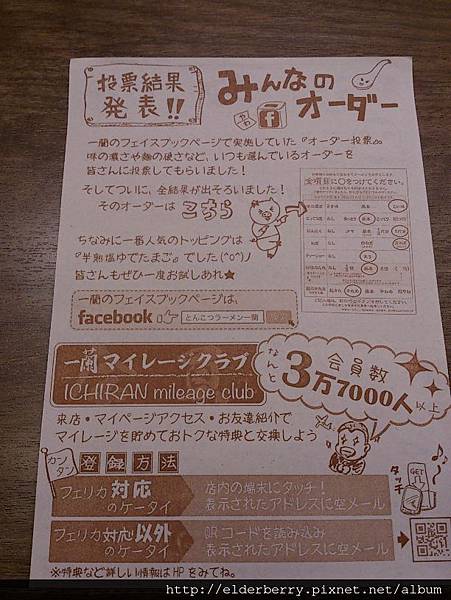 投票結果
発表!!
みんなの
オーダー
一蘭のフェイスブックページで実施していた『オーダー投票』。
味の濃さや麺の硬さなど、いつも選んでいるオーダーを
皆さんに投票してもらいました！
そしてついに、全結果が出そろいました！
そのオーダーは こちら
ちなみに一番人気のトッピングは
『半熟塩ゆでたまご』でした(^o^)ノ
皆さんもぜひ一度お試しあれ★
一蘭のフェイスブックページは、
facebook とんこつラーメン一蘭
全項目に○をつけてください。
一蘭 マイレージクラブ
ICHIRAN mileage club
なんと
会員数
3万7000人以上
来店・マイページアクセス・お友達紹介で
マイレージを貯めておトクな特典と交換しよう
カンタン
登録方法
フェリカ対応
のケータイ
店内の端末にタッチ！
表示されたアドレスに空メール
タッチ
GET
フェリカ対応以外
のケータイ
QRコードを読み込み
表示されたアドレスに空メール
※特典など詳しい情報はHPをみてね。
http://elderberry.pixnet.net/album